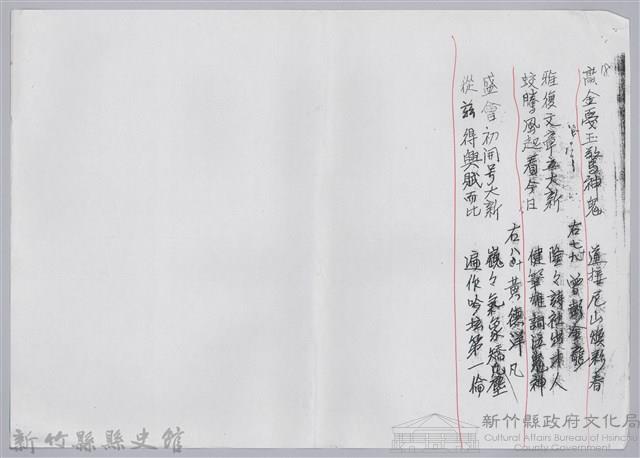 18
敲金戛玉驚神鬼 道接尼山煥新春
右七九 曾
雅復文章在大新 隆々詩社出詩人
蛟騰風起看今日 健筆雄詞泣鬼神
右八十 黃德洋
盛會初開号大新 巍々氣象矯凡塵
從茲得與賦而比 遍作吟坛第一倫
新竹縣縣史館
新竹縣政府文化局
Cultural Affairs Bureau of Hsinchu
County Government